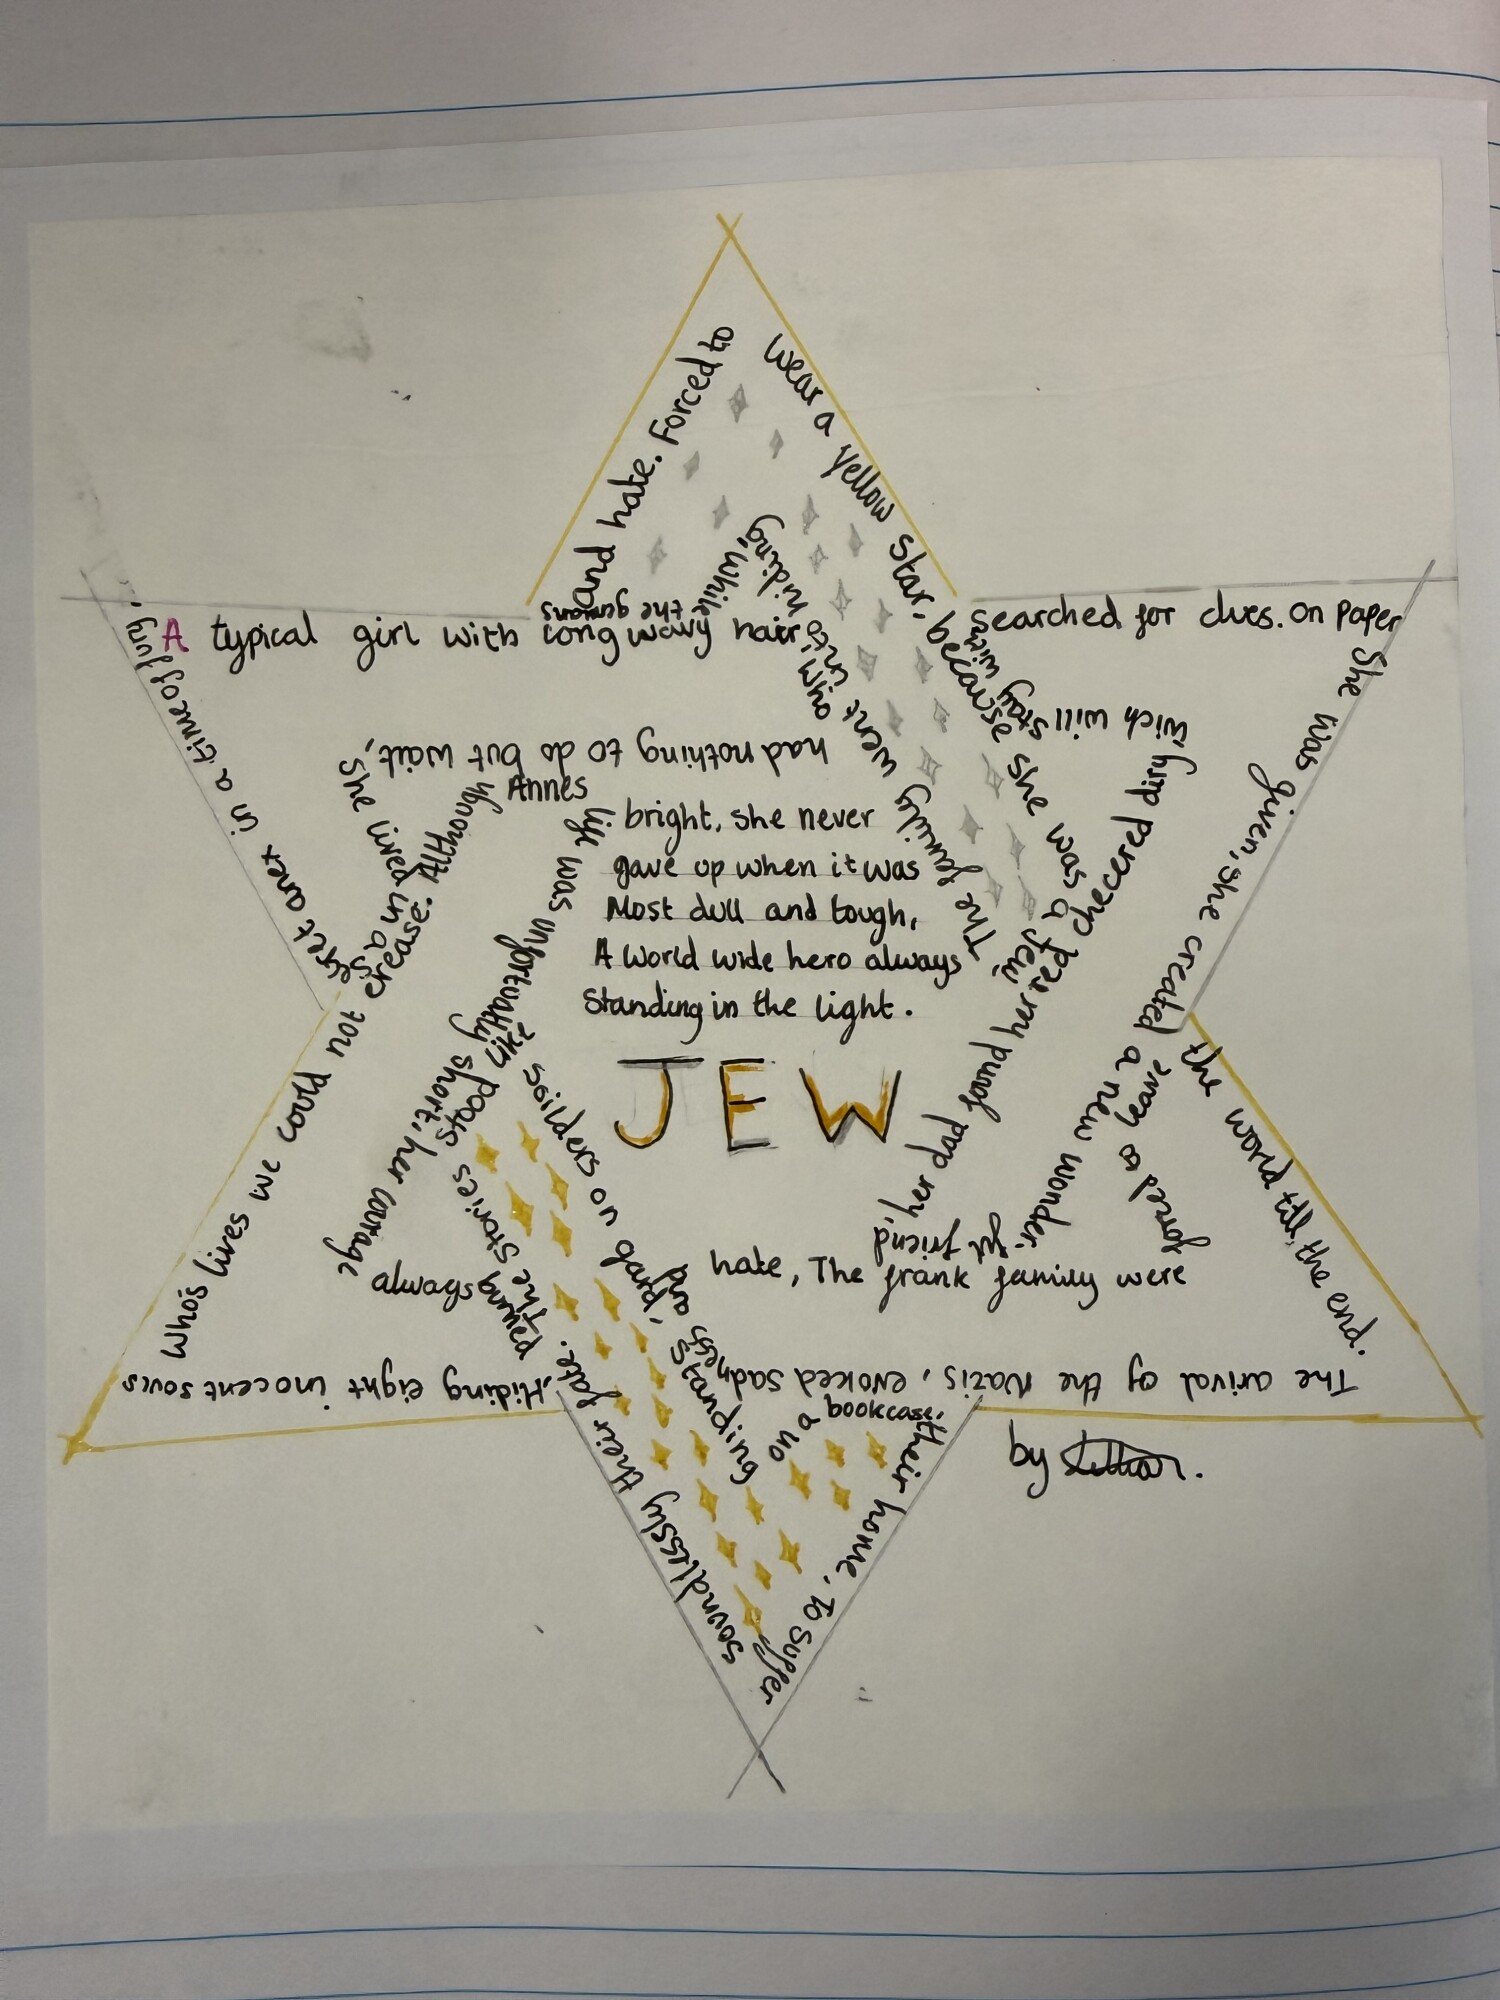 A typical girl with long wavy hair
She lived in a
secret anex in a time of fury,
and hate. Forced to
wear a yellow star, because she was a jew.
The family went into hiding,
while
the germans
searched for clues. on paper
She was given, she created a new wonder-
her dad found her red checered diry
wich will
stay with
the world till the end.
The arival of the Nazis, evoked sadness and
hate, The frank family were
forced to leave
get friend,
their home, To suffer
soundlessly their fate.
Hiding eight inocent souls
Who's lives we could not crease. Although
had nothing to do but wait,
Annes
life was unfortunatly short, her courage
always
The stories stood like soilders on
grand,
standing
on a
bookcase,
bright, she never
gave up when it was
Most dull and tough,
A world wide hero always
Standing in the light.
JEW
by